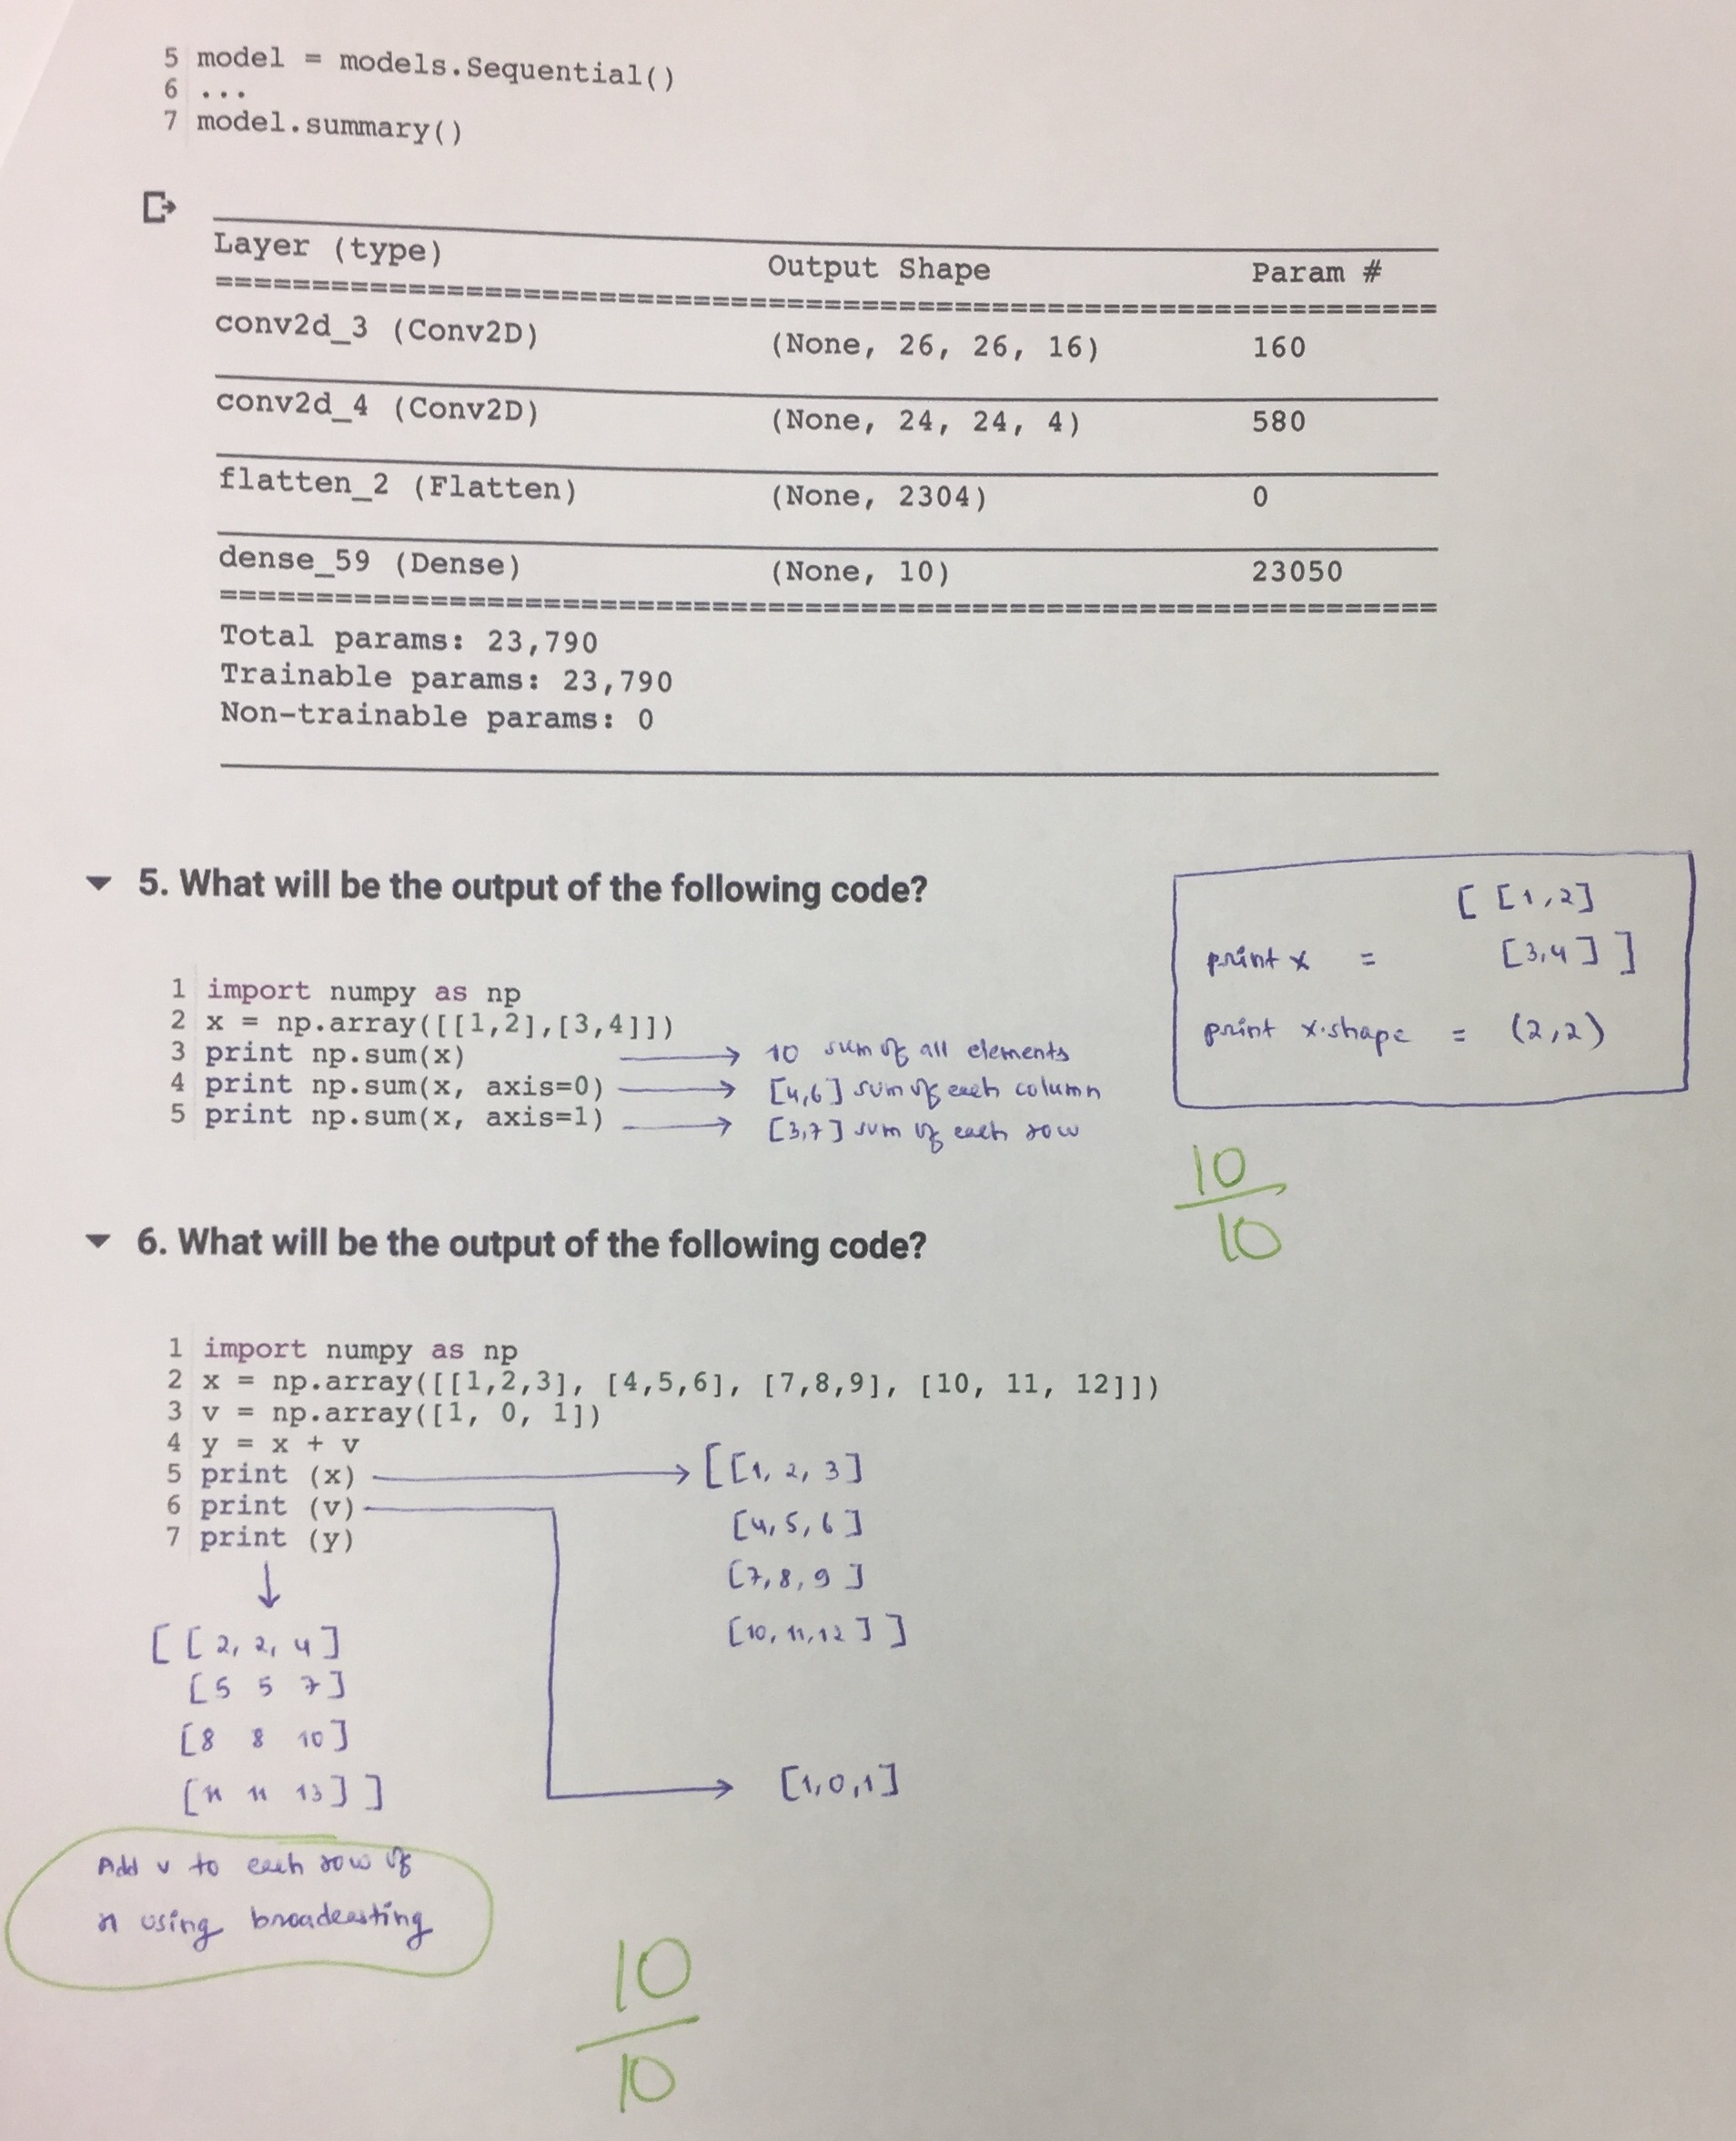 5 model = models.Sequential()
6 ...
7 model.summary()
Layer (type) Output Shape Param #
=================================================================
conv2d_3 (Conv2D) (None, 26, 26, 16) 160
conv2d_4 (Conv2D) (None, 24, 24, 4) 580
flatten_2 (Flatten) (None, 2304) 0
dense_59 (Dense) (None, 10) 23050
=================================================================
Total params: 23,790
Trainable params: 23,790
Non-trainable params: 0
5. What will be the output of the following code?
[ [1,2]
print x = [3,4] ]
print x.shape = (2,2)
1 import numpy as np
2 x = np.array([[1,2],[3,4]])
3 print np.sum(x) → 10 sum of all elements
4 print np.sum(x, axis=0) → [4,6] sum of each column
5 print np.sum(x, axis=1) → [3,7] sum of each row
10
10
6. What will be the output of the following code?
1 import numpy as np
2 x = np.array([[1,2,3], [4,5,6], [7,8,9], [10, 11, 12]])
3 v = np.array([1, 0, 1])
4 y = x + v
5 print (x)
6 print (v)
7 print (y)
[[1, 2, 3]
[4, 5, 6]
[7, 8, 9]
[10, 11, 12] ]
[ [ 2, 2, 4 ]
[5 5 7]
[8 8 10]
[11 11 13] ]
[1,0,1]
Add v to each row of
x using broadcasting
10
10